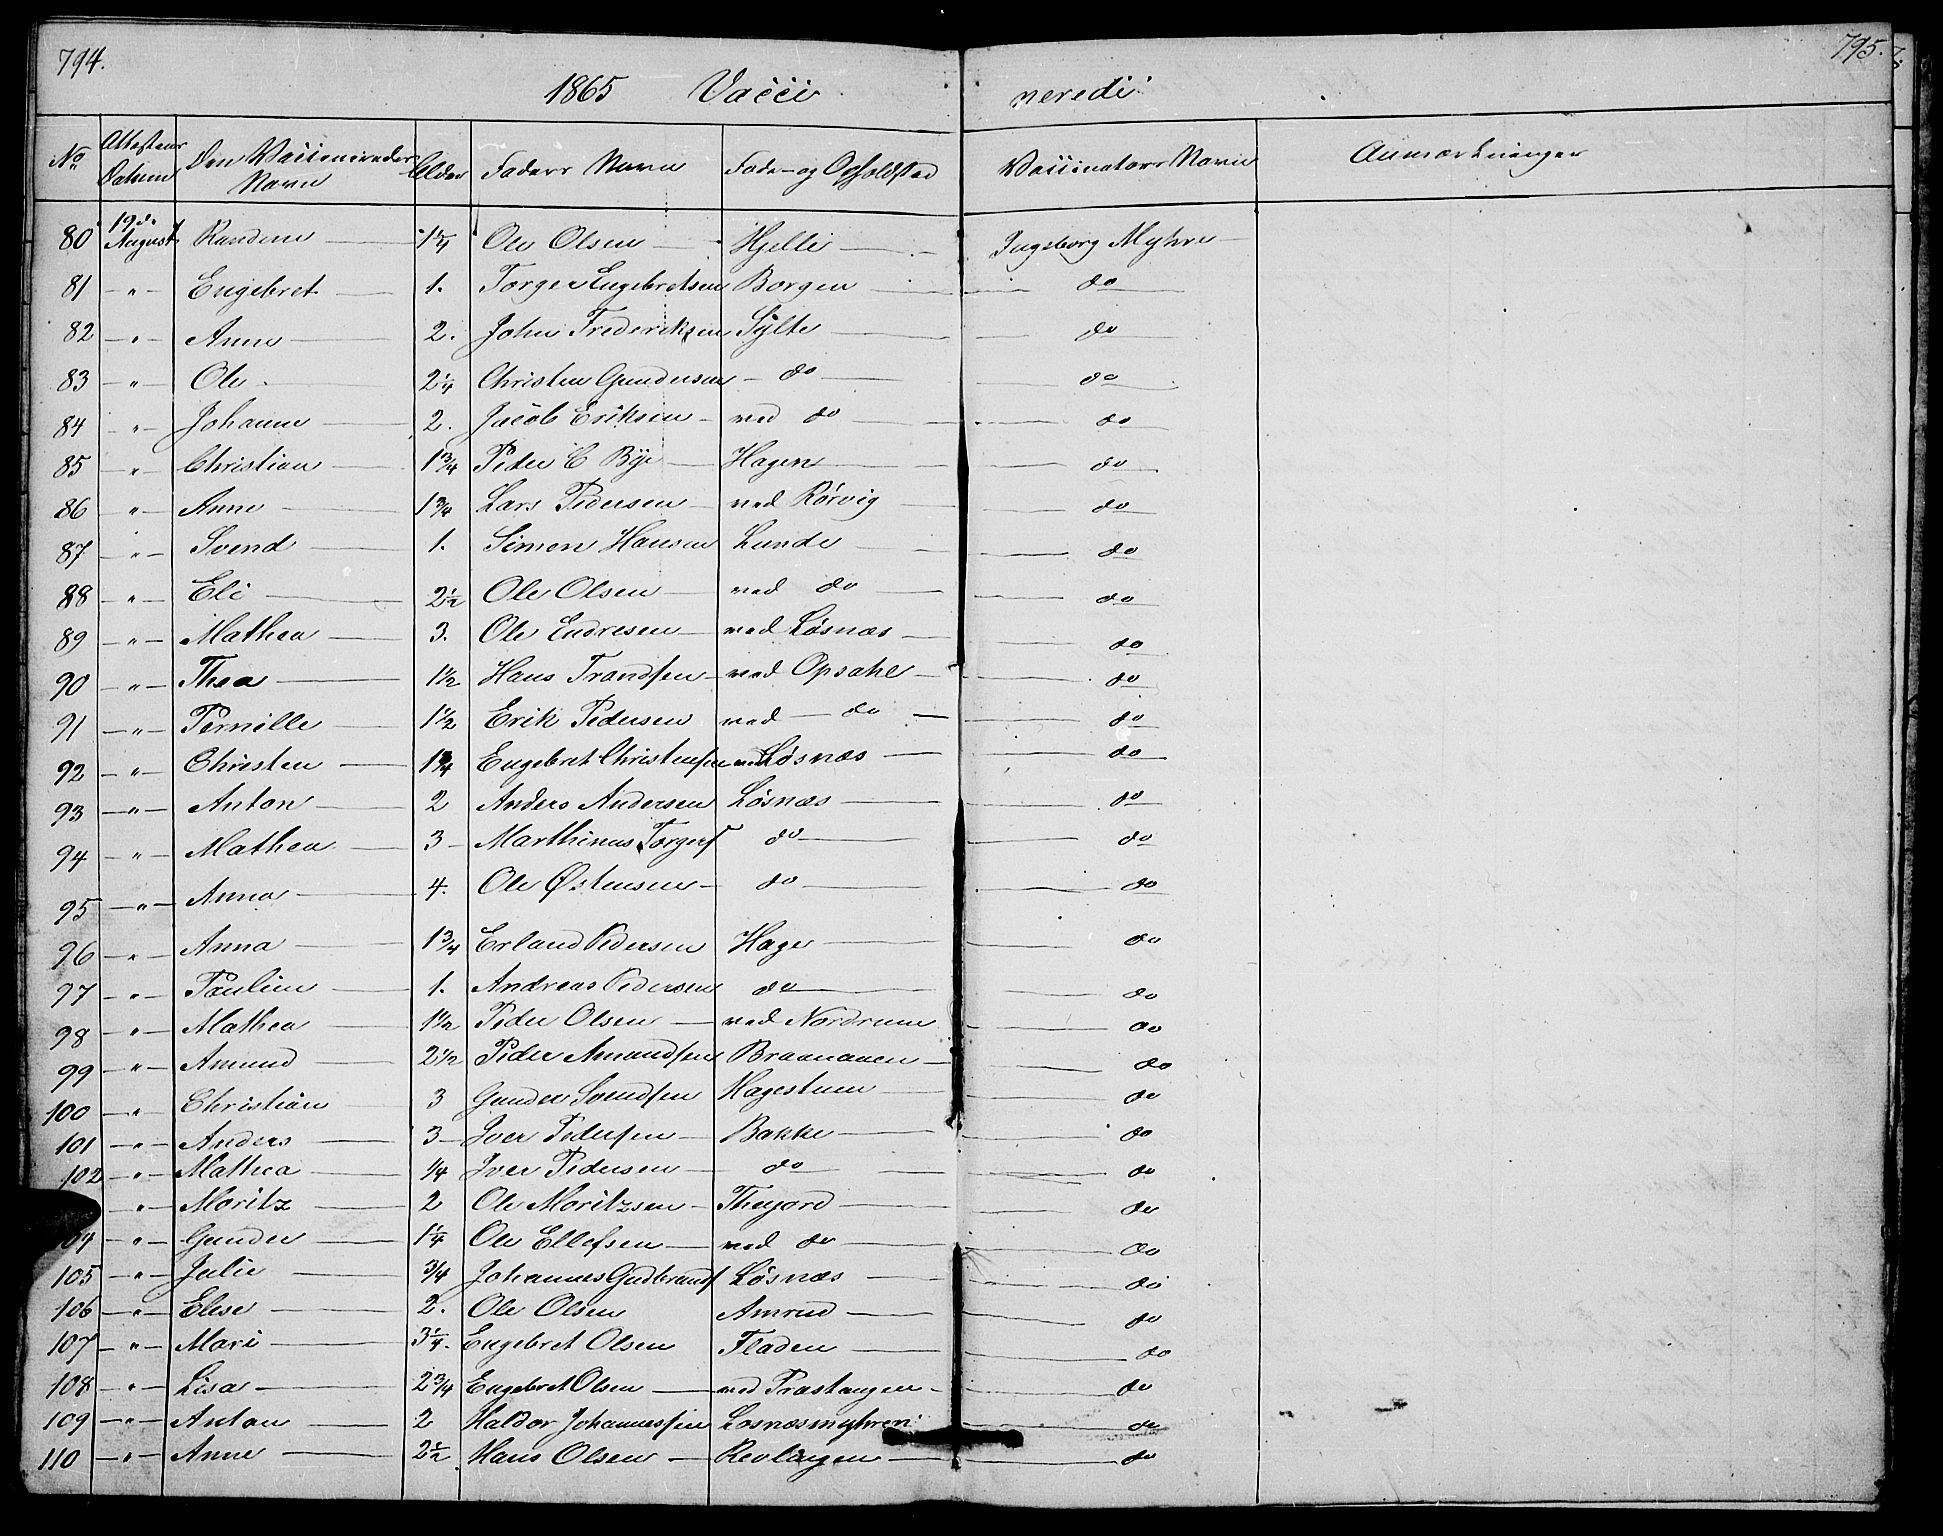 794.
795.
1865 Vacci neredi
No Attestens Datum Den Vaccineredes Navn Alder Faders Navn Føde- og Opholdsted Vaccinatørs Navn Anmærkninger
80 19de August Randine 1 1/4 Ole Olsen Hjelle Ingeborg Myhre
81 " Engebret 1. Torger Engebretsen Borgen do
82 " Anne 2. John Frederiksen Sylte do
83 " Ole 2 1/4 Christen Gundersen do do
84 " Johanne 2. Jacob Eriksen ved do do
85 " Christian 1 3/4 Peder C Bye Hagen do
86 " Anne 1 3/4 Lars Pedersen ved Rørvig do
87 " Svend 1. Simen Hansen Lunde do
88 " Eli 2 1/2 Ole Olsen ved do do
89 " Mathea 3. Ole Endresen ved Løsnæs do
90 " Thea 1 1/2 Hans Trandsen ved Opsahl do
91 " Pernille 1 1/2 Erik Pedersen ved do do
92 " Christen 1 3/4 Engebret Christensen ved Løsnæs do
93 " Anton 2 Anders Andersen Løsnæs do
94 " Mathea 3 Marthinus Torgers do do
95 " Anna 4. Ole Østensen do do
96 " Anna 1 3/4 Erland Pedersen Hage do
97 " Pauline 1. Andreas Pedersen do do
98 " Mathea 1 1/2 Peder Olsen ved Nordrum do
99 " Amund 2 1/2 Peder Amundsen Braanaaen do
100 " Christian 3 Gunder Svendsen Hagestuen do
101 " Anders 3 Iver Pedersen Bakke do
102 " Mathea 1/4 Iver Pedersen do do
" Moritz 2 Ole Moritzsen Thujord do
04 " Gunder 1 1/4 Ole Ellefsen ved do do
105 " Julie 3/4 Johannes Gudbrands Løsnæs do
106 " Elise 2. Ole Olsen Amrud do
107 " Mari 3 1/4. Engebret Olsen Fladen do
108 " Lisa 2 3/4 Engebret Olsen ved Præstangen do
109 " Anton 2 Haldor Johannessen Losnæsmyhren do
110 " Anne 2 1/2 Hans Olsen Revlangen do